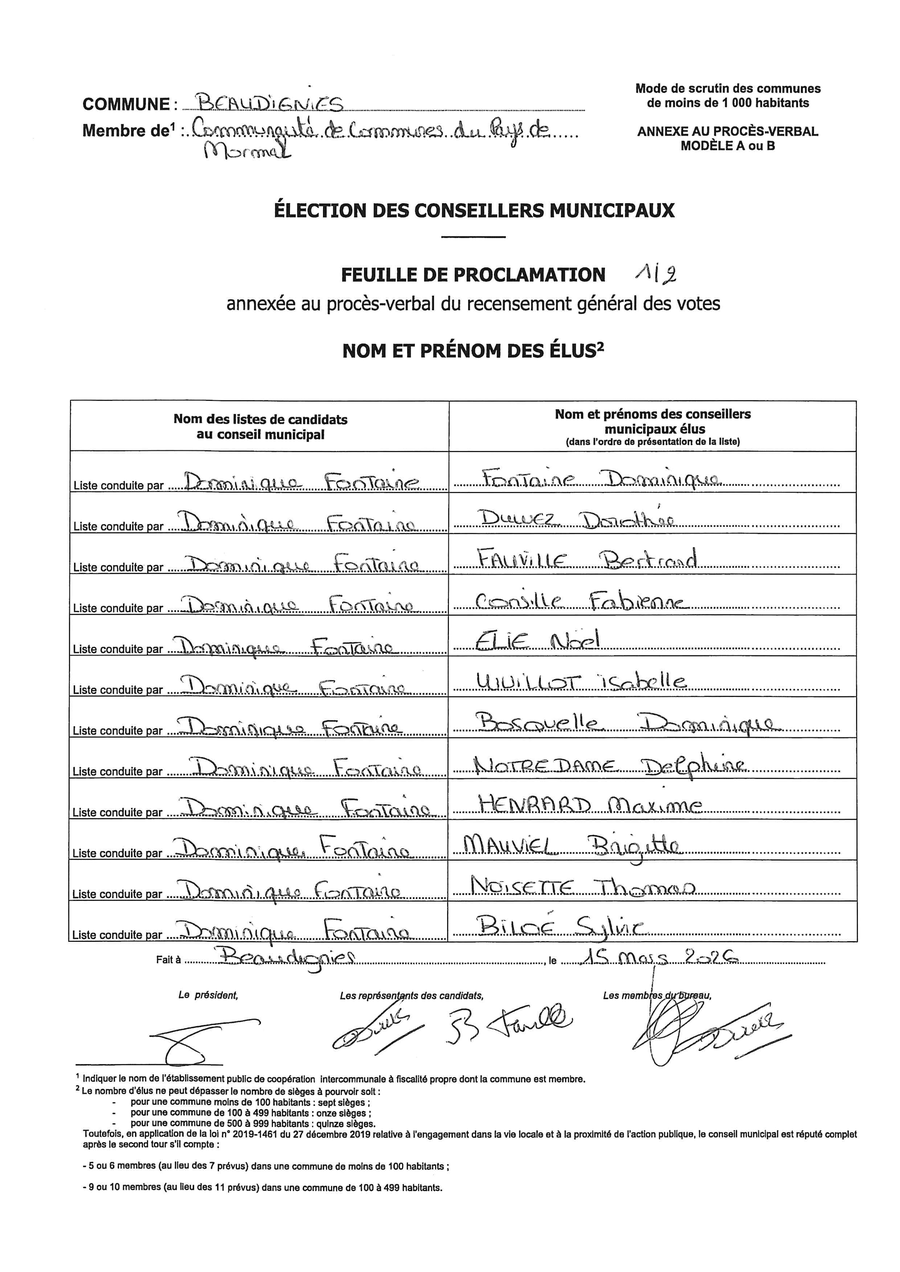 Mode de scrutin des communes
de moins de 1 000 habitants
COMMUNE : BEAUDIGNIES
Membre de¹ : Communauté de Communes du Pays de
Mormal
ANNEXE AU PROCÈS-VERBAL
MODÈLE A ou B
ÉLECTION DES CONSEILLERS MUNICIPAUX
FEUILLE DE PROCLAMATION 1/2
annexée au procès-verbal du recensement général des votes
NOM ET PRÉNOM DES ÉLUS²
Nom des listes de candidats
au conseil municipal
Nom et prénoms des conseillers
municipaux élus
(dans l'ordre de présentation de la liste)
Liste conduite par Dominique Fontaine Fontaine Dominique
Liste conduite par Dominique Fontaine Duwez Dorothée
Liste conduite par Dominique Fontaine FAUVILLE Bertrand
Liste conduite par Dominique Fontaine Consille Fabienne
Liste conduite par Dominique Fontaine ELIE Noël
Liste conduite par Dominique Fontaine Isabelle
Liste conduite par Dominique Fontaine Bosquelle Dominique
Liste conduite par Dominique Fontaine NOTREDAME Delphine
Liste conduite par Dominique Fontaine HENRARD Maxime
Liste conduite par Dominique Fontaine MAUVIEL Brigitte
Liste conduite par Dominique Fontaine NOISETTE Thomas
Liste conduite par Dominique Fontaine BILOÉ Sylvie
Fait à Beaudignies, le 15 mars 2026
Le président, Les représentants des candidats, Les membres du bureau,
¹ Indiquer le nom de l'établissement public de coopération intercommunale à fiscalité propre dont la commune est membre.
² Le nombre d'élus ne peut dépasser le nombre de sièges à pourvoir soit :
- pour une commune moins de 100 habitants : sept sièges ;
- pour une commune de 100 à 499 habitants : onze sièges ;
- pour une commune de 500 à 999 habitants : quinze sièges.
Toutefois, en application de la loi n° 2019-1461 du 27 décembre 2019 relative à l'engagement dans la vie locale et à la proximité de l'action publique, le conseil municipal est réputé complet
après le second tour s'il compte :
- 5 ou 6 membres (au lieu des 7 prévus) dans une commune de moins de 100 habitants ;
- 9 ou 10 membres (au lieu des 11 prévus) dans une commune de 100 à 499 habitants.